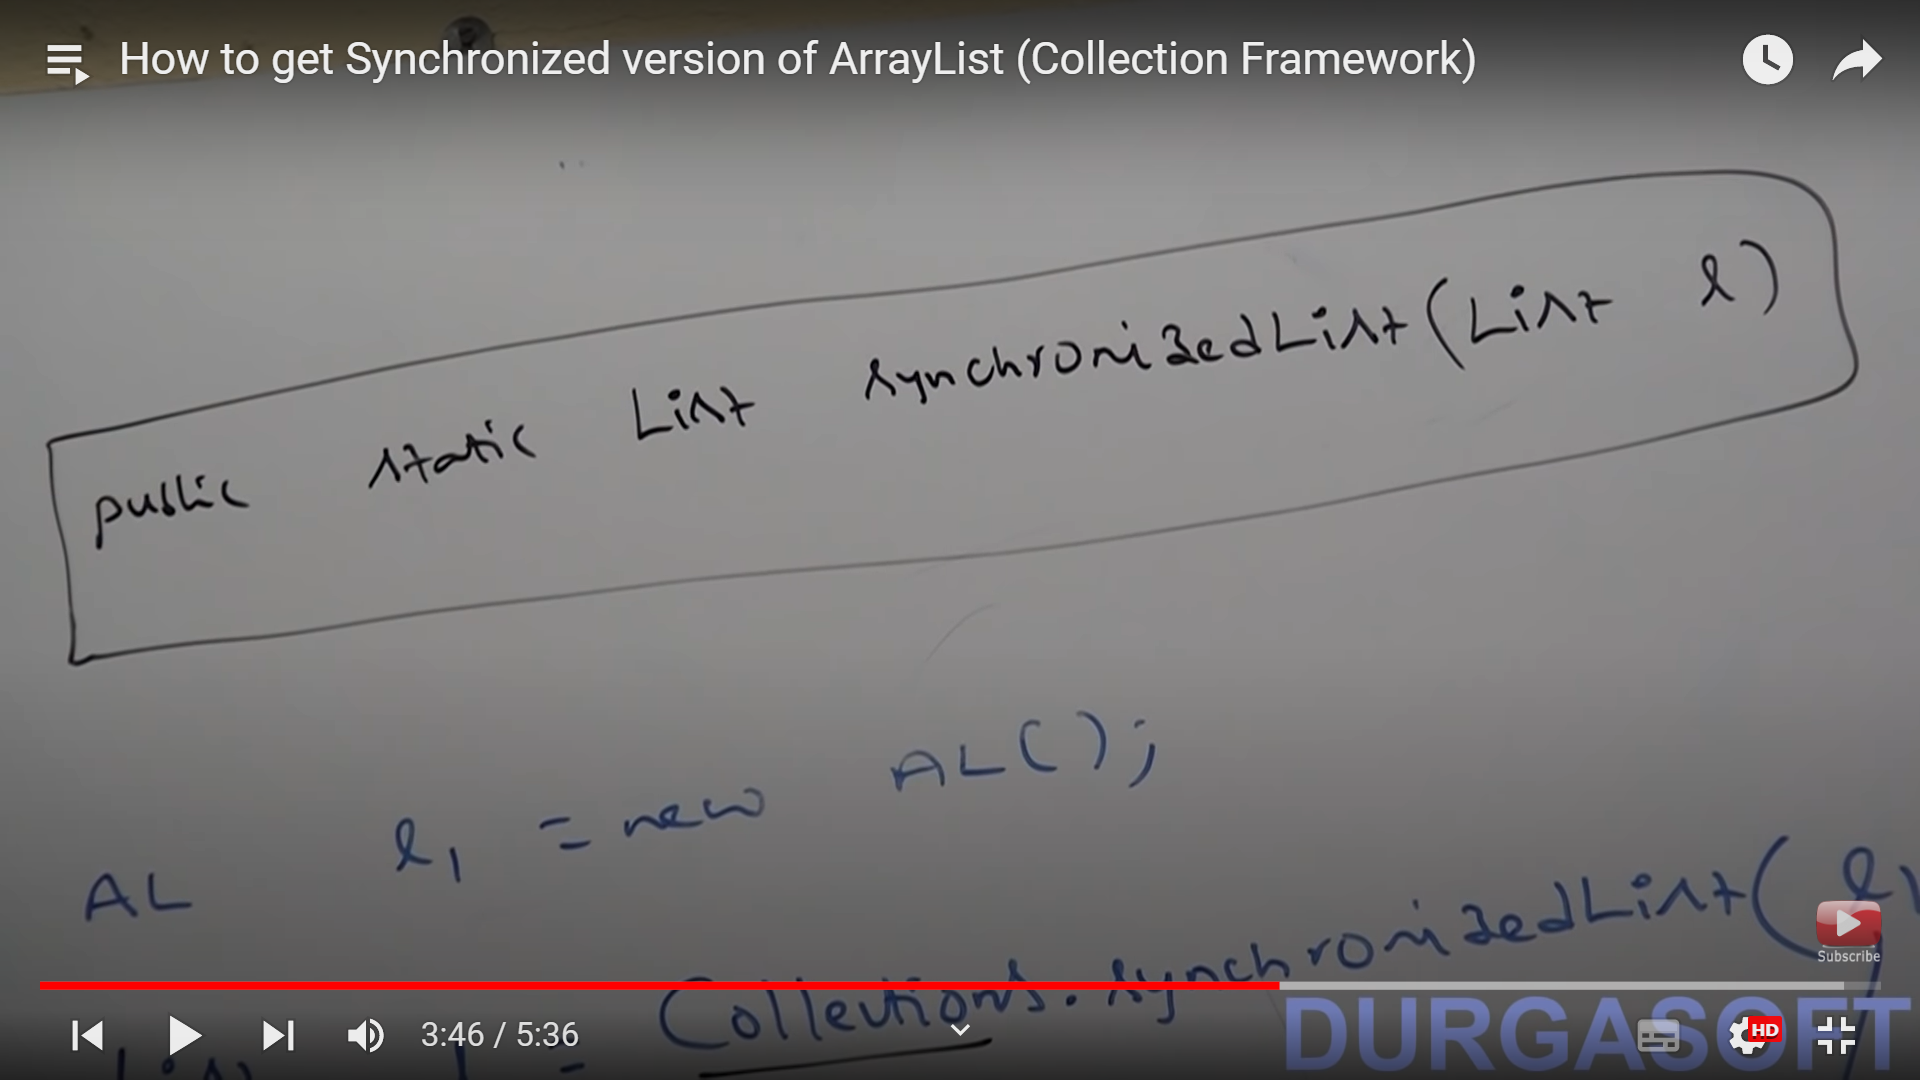 How to get Synchronized version of ArrayList (Collection Framework)
public static List synchronizedList(List l)
AL l1 = new AL();
Collections.synchronizedList(l1
=
Subscribe
3:46 / 5:36
HD
DURGASOFT